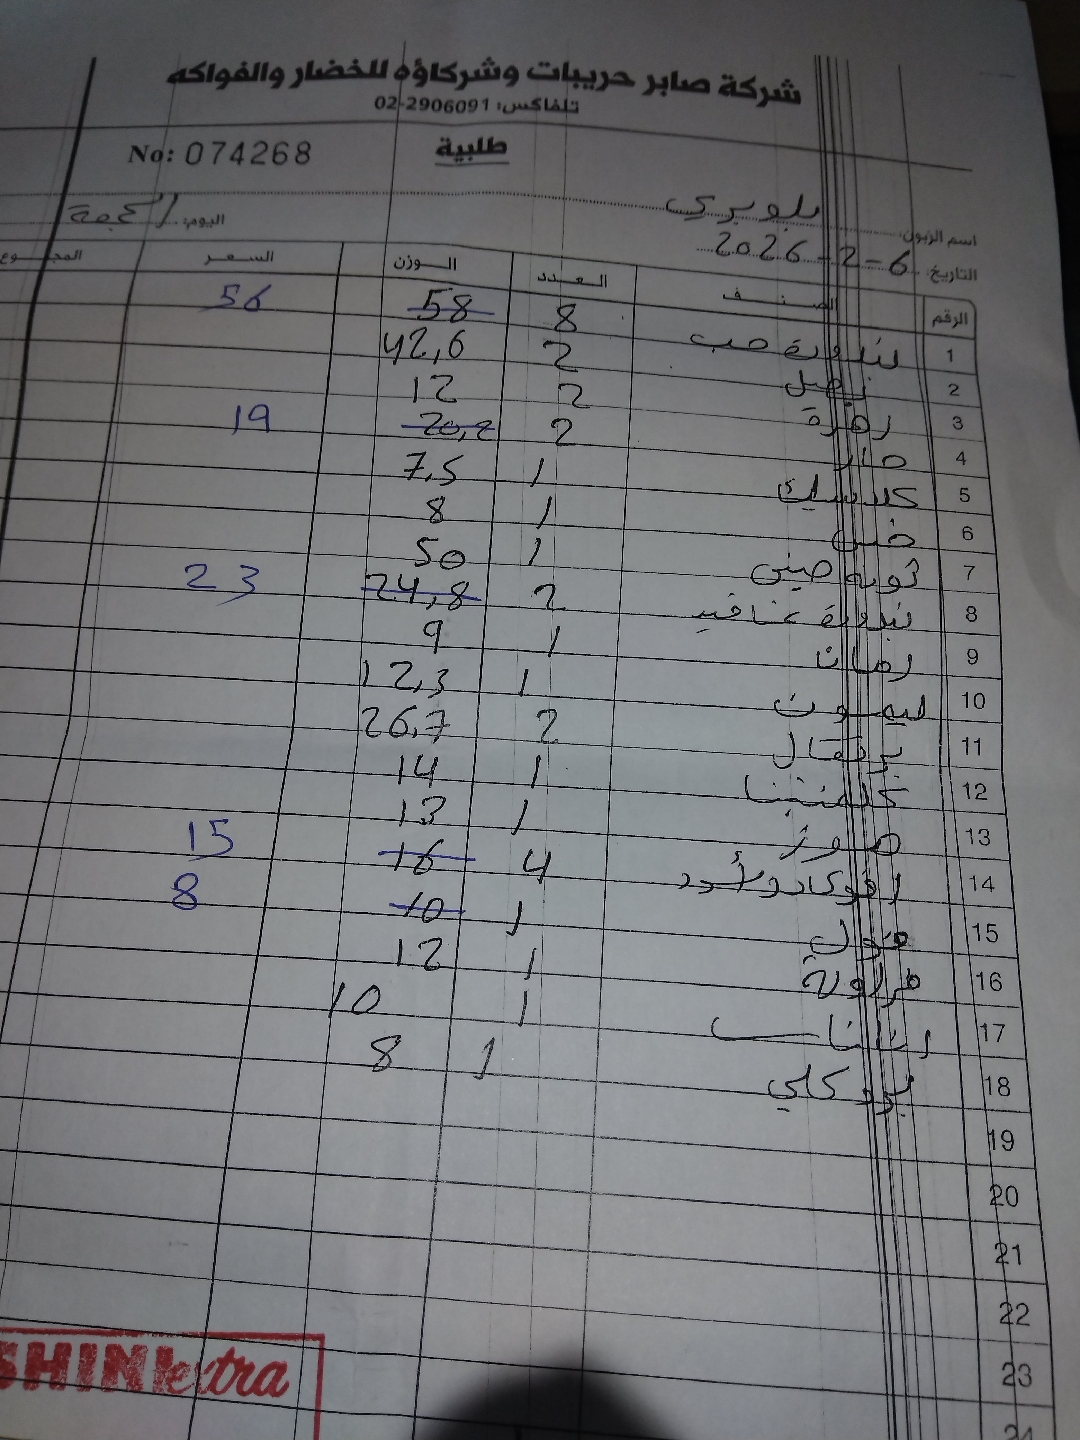 شركة صابر حريبات وشركاؤه للخضار والفواكه
تلفاكس: 02-2906091
طلبية
No: 074268
اسم الزبون: بلوبري
اليوم: الجمعة
التاريخ: 6-2-2026
الرقم الصنف العدد الوزن السعر المجموع
1 بندورة حب 8 58 56
2 بصل 2 42,6
3 زهرة 2 12
4 2 20,2 19
5 كلاسيك 1 7,5
6 خس 1 8
7 ثومة صيني 1 50
8 بندورة عناقيد 2 24,8 23
9 رمان 1 9
10 ليمون 1 12,3
11 برتقال 2 26,7
12 كلمنتينا 1 14
13 موز 1 13
14 افوكادو أسود 4 16 15
15 فول 1 10 8
16 فراولة 1 12
17 اناناس 1 10
18 بروكلي 1 8
19
20
21
22
23
24
SHINextra